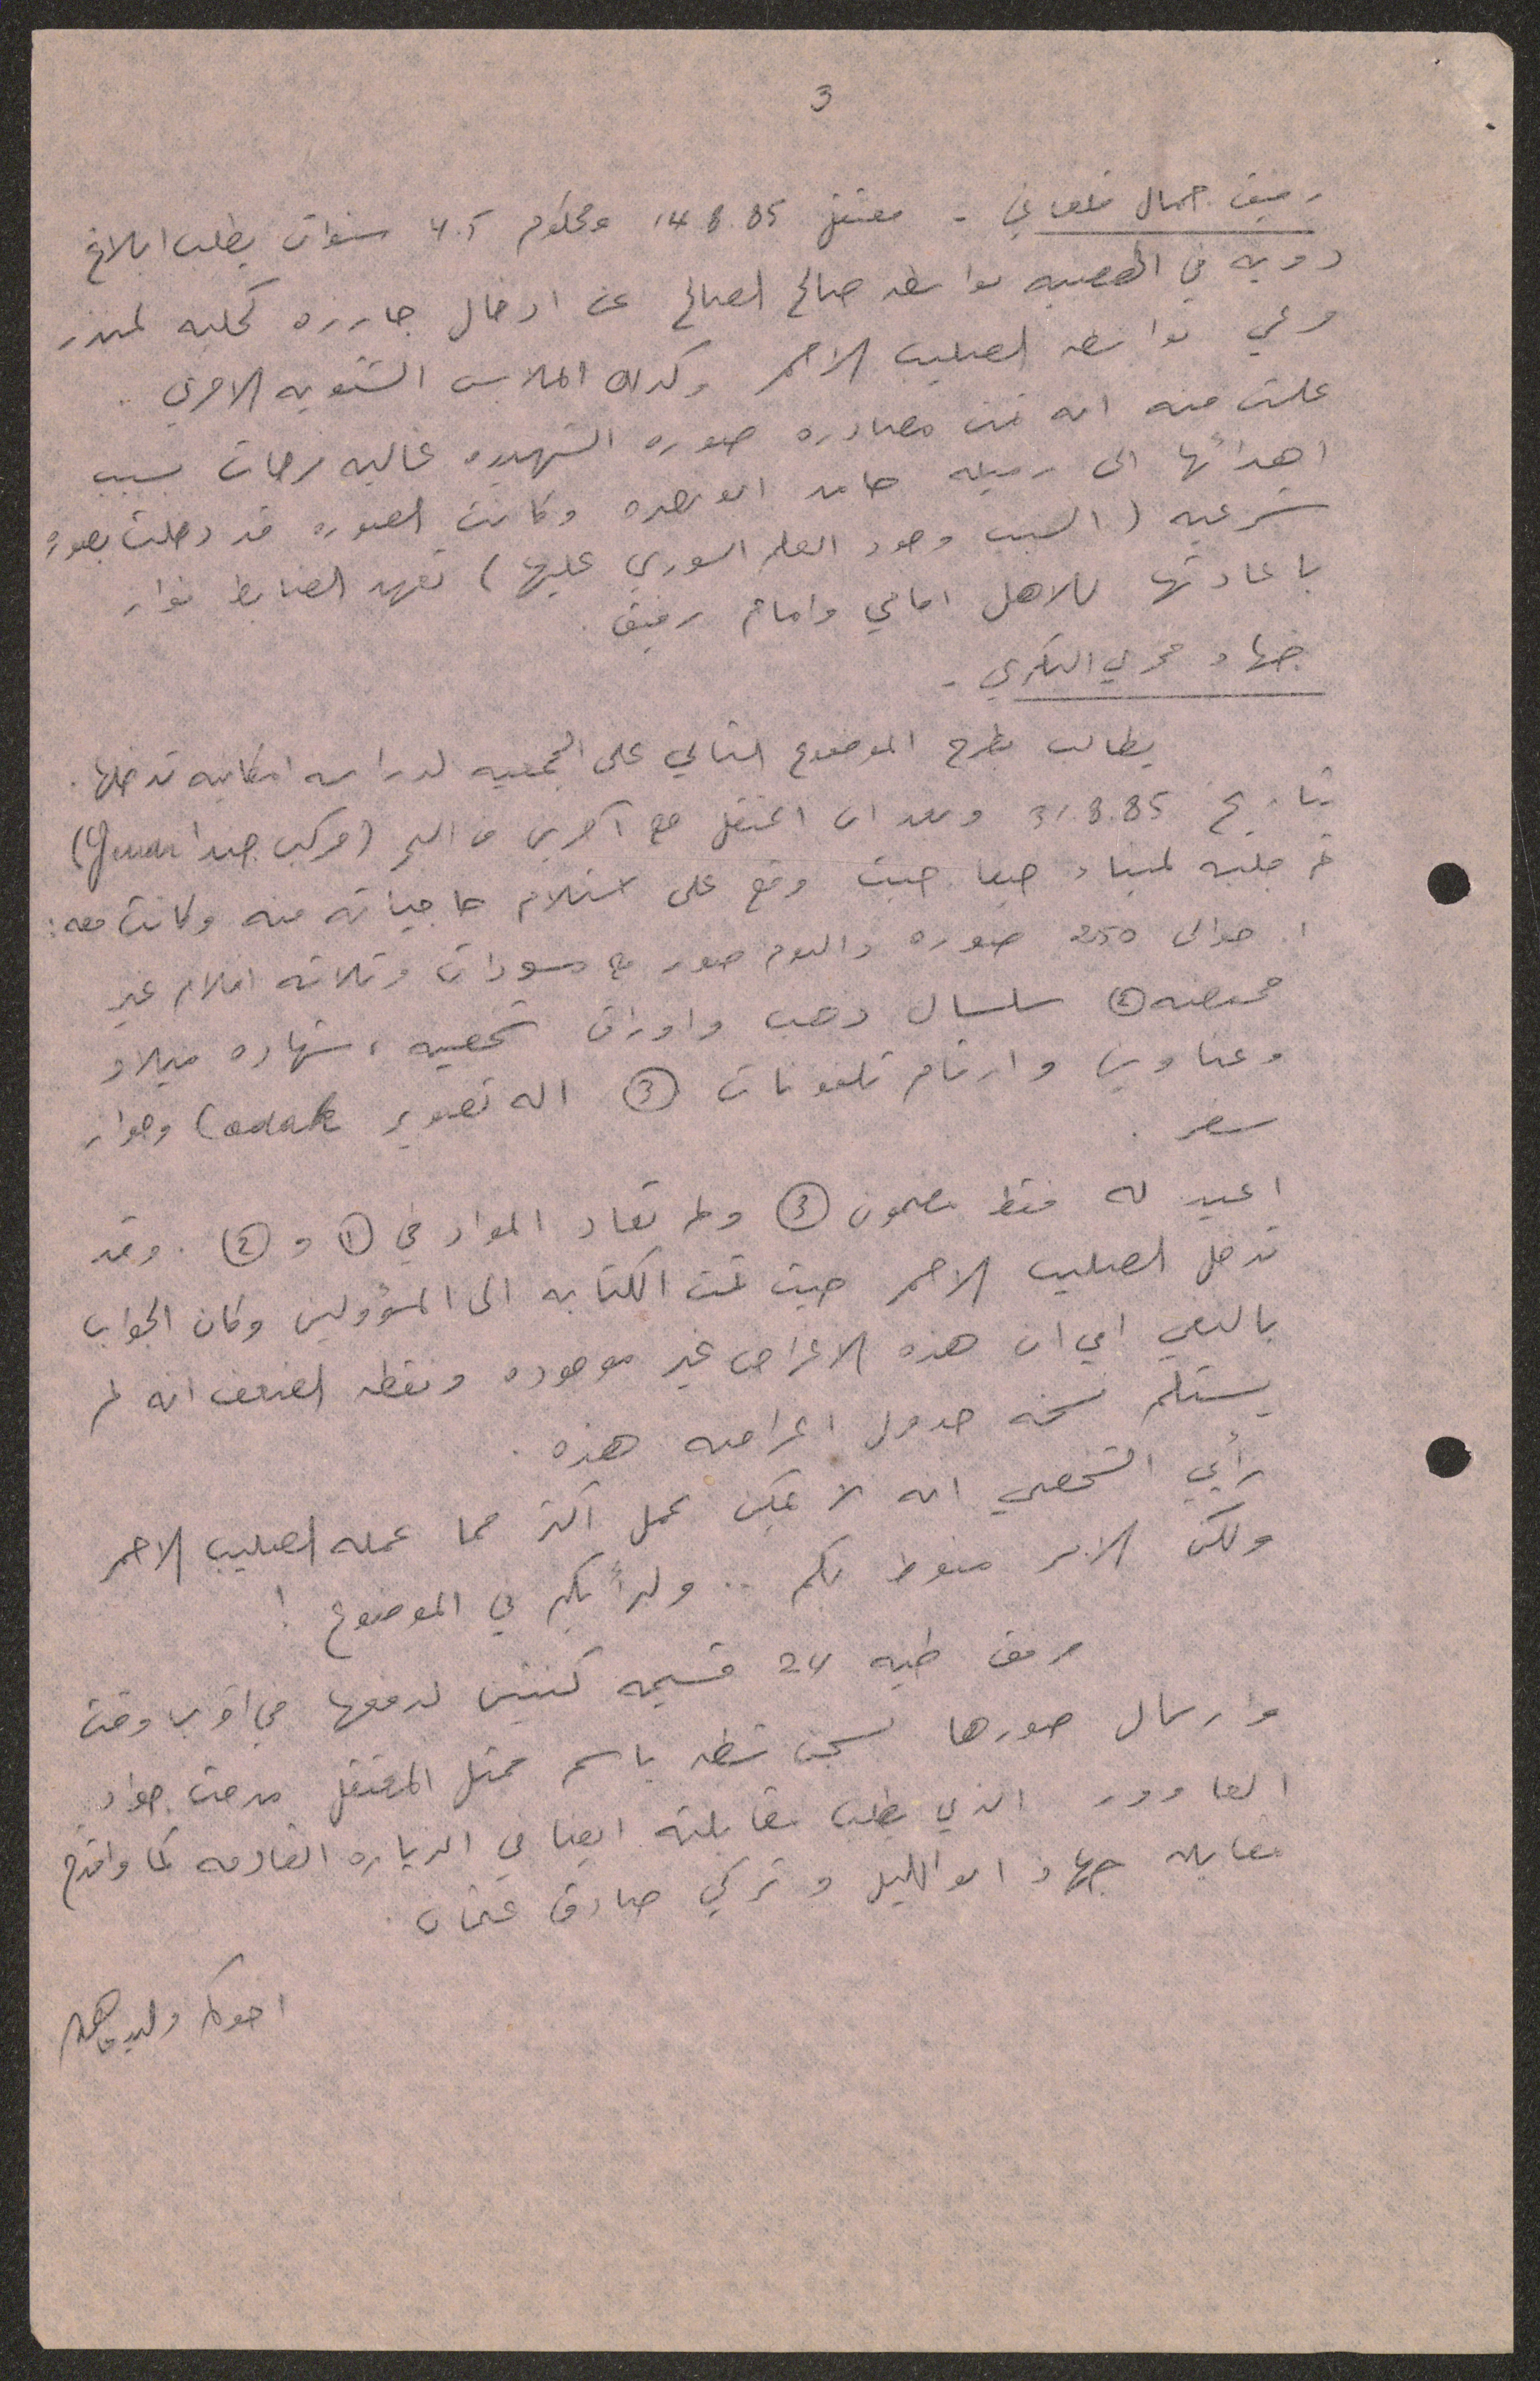 3
رفيق جمال قلعاني - معتقل 14.8.85 ومحكوم 4.5 سنوات يطلب ابلاغ
ذويه في بواسطه صالح الصالح عن ادخال جارزه كحليه لمنذر
مرعي بواسطه الصليب الاحمر وكذلك الملابس الشتويه الاخرى ..
علمت منه انه تمت مصادره صوره الشهيده غاليه فرحات بسبب
اهدائها الى زميله حامد ابو وكانت الصوره قد دخلت بصوره
شرعيه (السبب وجود العلم السوري عليها) تعهد الضابط فواز
باعادتها للاهل امامي وامام رفيق.
جهاد البكري -
يطالب بطرح الموضوع التالي على الجمعيه لدراسه امكانيه تدخلها.
بتاريخ 31.8.85 وبعد ان اعتقل مع آخرين من البحر (مركب جندا
تم جلبه لميناء حيفا حيث وقع على استلام حاجياته منه وكانت معه:
١. حوالى 250 صوره والبوم صور مع مسودات وثلاثه افلام غير
محمضه ② سلسال ذهب واوراق شخصيه، شهاده ميلاد
وعناوين وارقام تلفونات ③ اله تصوير وجواز
سفر.
اعيد له فقط مضمون ③ ولم تعاد المواد في ① و ②. وقد
تدخل الصليب الاحمر حيث تمت الكتابه الى المسؤولين وكان الجواب
بالنفي اي ان هذه الاغراض غير موجوده ونقطه الضعف انه لم
يستلم نسخه جدول اغراضه هذه.
برأيي الشخصي انه لا يمكن عمل اكثر مما عمله الصليب الاحمر
ولكن الامر منوط بكم .. ولرأيكم في الموضوع !
مرفق طيه 24 قسيمه كنتين لدفعها في اقرب وقت
وارسال صورها لسجن شطه باسم ممثل المعتقل مدحت جواد
الذي يطلب مقابلته ايضا في الزياره القادمه كما واقترح
مقابله جهاد ابو الليل وتركي صادق عثمان.
اخوكم وليد